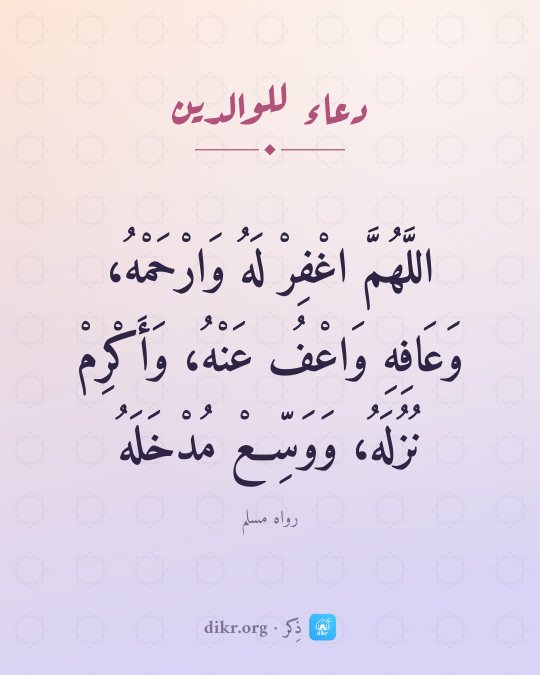 دعاء للوالدين
اللَّهُمَّ اغْفِرْ لَهُ وَارْحَمْهُ،
وَعَافِهِ وَاعْفُ عَنْهُ، وَأَكْرِمْ
نُزُلَهُ، وَوَسِّعْ مُدْخَلَهُ
رواه مسلم
ذِكر · dikr.org
dikr